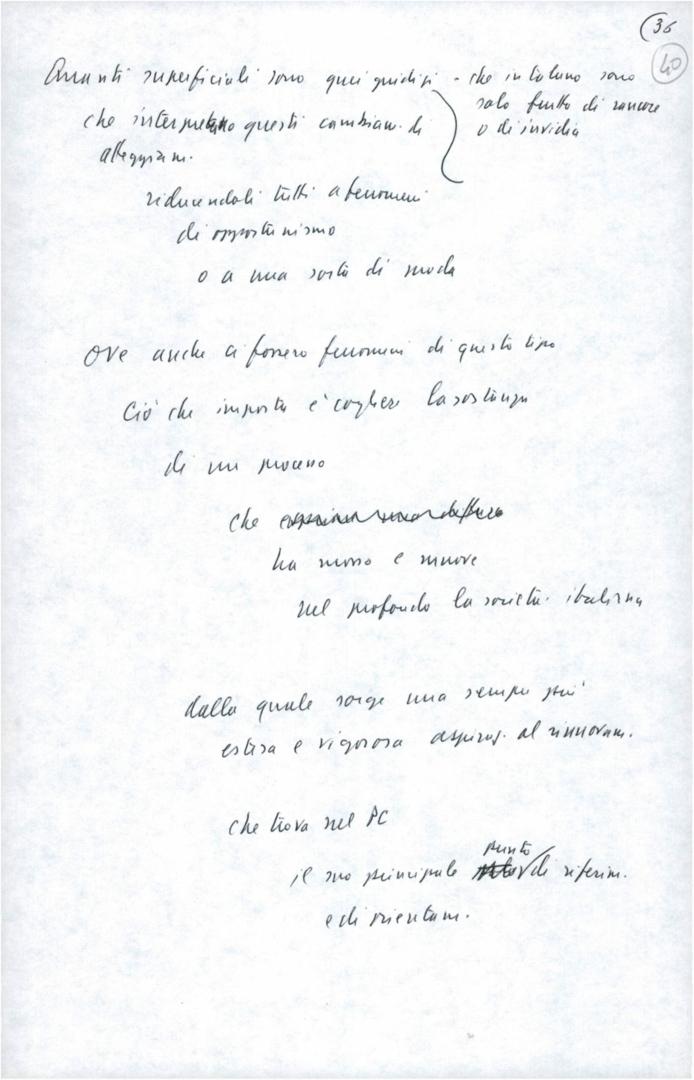 36
40
Quanti superficiali sono quei giudizi - che in taluno sono
solo frutto di rancore
che interpretano questi cambiam. di
o di invidia
atteggiam.
riducendoli tutti a fenomeni
di opportunismo
o a una sorta di moda
Ove anche ci fossero fenomeni di questo tipo
Ciò che importa è cogliere la sostanza
di un processo
che
ha mosso e muove
nel profondo la società italiana
dalla quale sorge una sempre più
estesa e vigorosa aspiraz. al rinnovam.
che trova nel PC
il suo principale punto di riferim.
e di orientam.